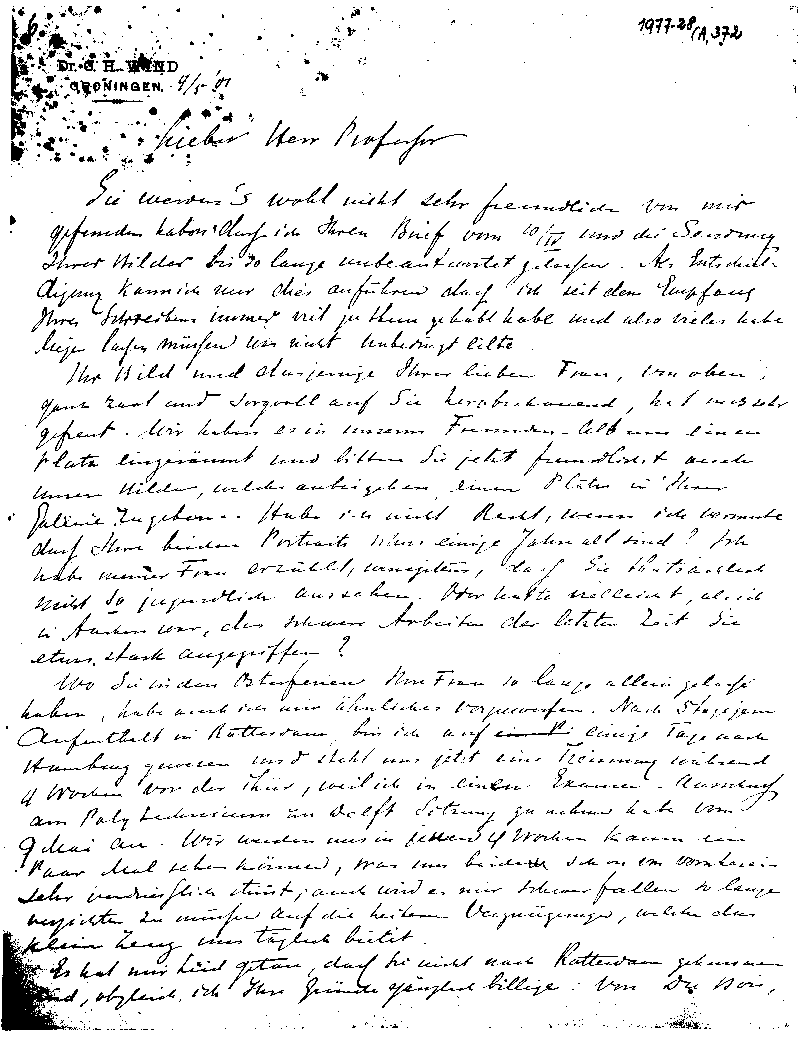 1977-28/A,372
6
Dr. C. H. WIND
GRONINGEN, 4/5 '01
Lieber Herr Professor
Sie werden's wohl nicht sehr freundlich von mir
gefunden haben dass ich Ihren Brief vom 10/IV und die Sendung
Ihrer Bilder bis so lange unbeantwortet gelassen. Als Entschul-
digung kann ich nur dies anführen dass ich seit dem Empfang
Ihres Schreibens immer viel zu thun gehabt habe und also vieles habe
liegen lassen müssen was nicht unbedingt eilte.
Ihr Bild und dasjenige Ihrer lieben Frau, von oben,
ganz zart und sorgvoll auf Sie herabschauend, hat uns sehr
gefreut. Wir haben es in unserem Freunden-Album einen
Platz eingeräumt und bitten Sie jetzt freundlichst auch
unsere Bilder, welche anbei gehen, einen Platz in Ihrer
Galerie zu geben. Habe ich nicht Recht, wenn ich vermute
dass Ihre beiden Portraits schon einige Jahre alt sind? Ich
habe meiner Frau erzählt, wenigstens, dass Sie thatsächlich
nicht so jugendlich aussehen. Oder hatte vielleicht, als ich
in Aachen war, das schwere Arbeiten der letzten Zeit Sie
etwas stark angegriffen?
Wo Sie in den Osterferien Ihre Frau so lange allein gelassen
haben, habe auch ich mir ähnliches vorzuwerfen. Nach 5 tägigem
Aufenthalt in Rotterdam, bin ich auf einige Tage nach
Hamburg gewesen und steht uns jetzt eine Trennung während
4 Wochen vor der Thür, weil ich in einem Examen-Ausschuss
am Polytechnicum in Delft Sitzung zu nehmen habe vom
9 Mai an. Wir werden uns in jenen 4 Wochen kaum ein
Paar Mal sehen können, was uns beiden schon im vornherein
sehr verdriesslich stimmt; auch wird es mir schwer fallen so lange
verzichten zu müssen auf die heiteren Vergnügungen, welche das
klein Zeug uns täglich bietet.
Es hat mir Leid getan, dass Sie nicht nach Rotterdam gekommen
sind, obgleich ich Ihre Gründe gänzlich billige. Von Du Bois,